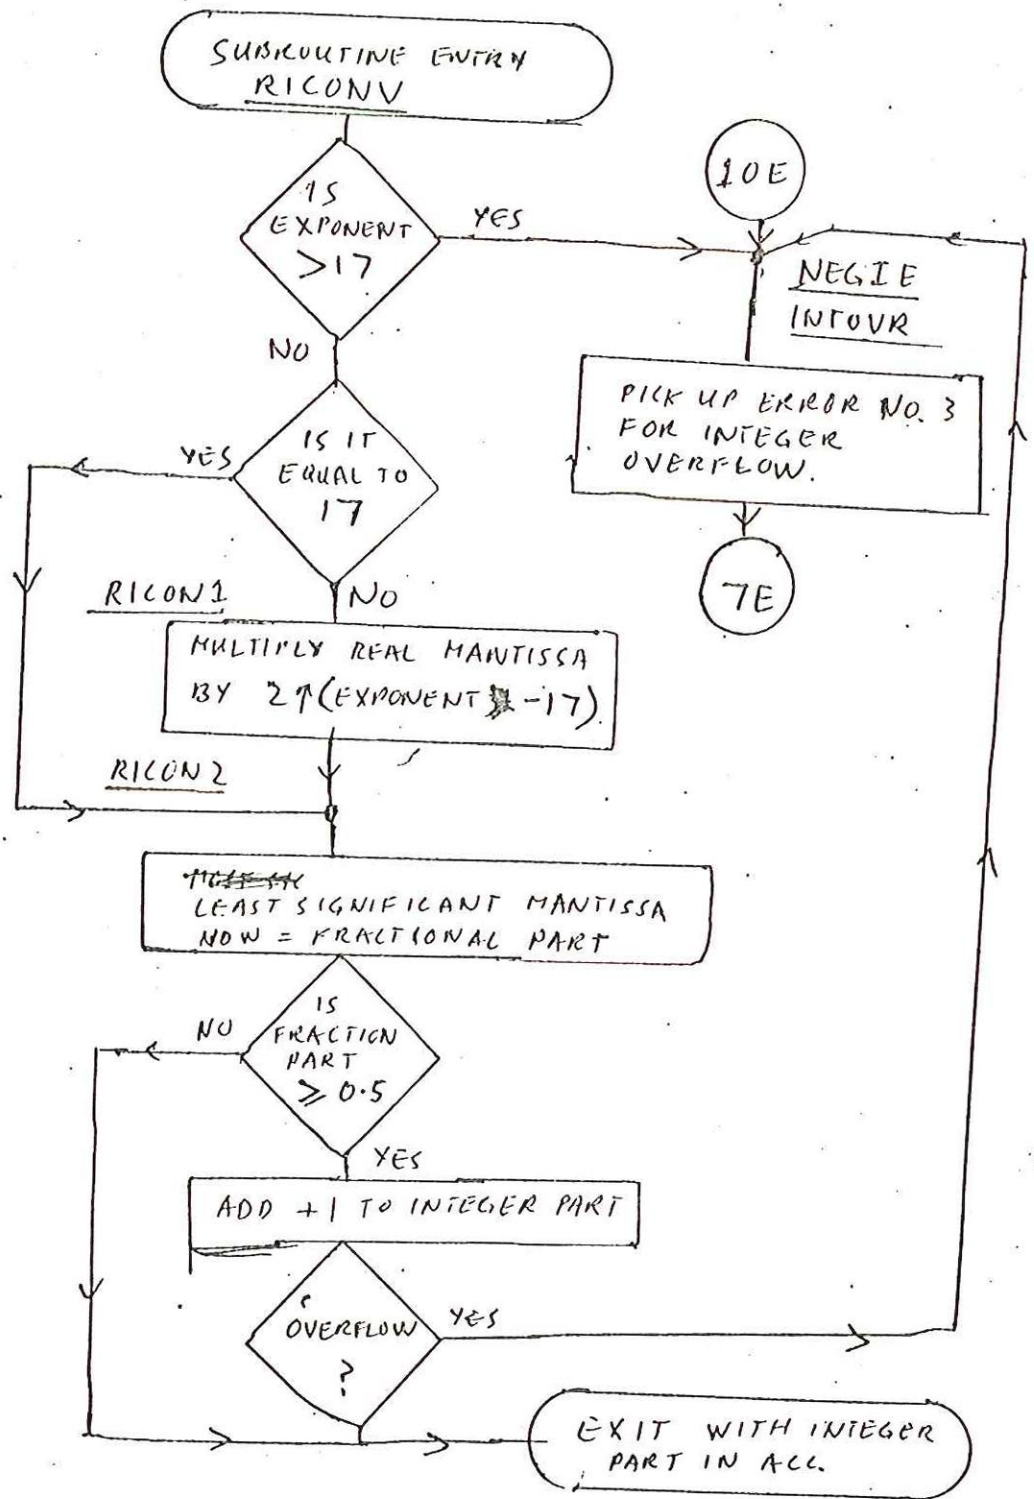 SUBROUTINE ENTRY
RICONV
IS
EXPONENT
>17
YES
NO
10E
NEGIE
INTOVR
PICK UP ERROR NO. 3
FOR INTEGER
OVERFLOW.
7E
IS IT
EQUAL TO
17
YES
NO
RICON1
MULTIPLY REAL MANTISSA
BY 2↑(EXPONENT -17)
RICON2
LEAST SIGNIFICANT MANTISSA
NOW = FRACTIONAL PART
IS
FRACTION
PART
≥ 0.5
NO
YES
ADD +1 TO INTEGER PART
OVERFLOW
?
YES
EXIT WITH INTEGER
PART IN ACC.